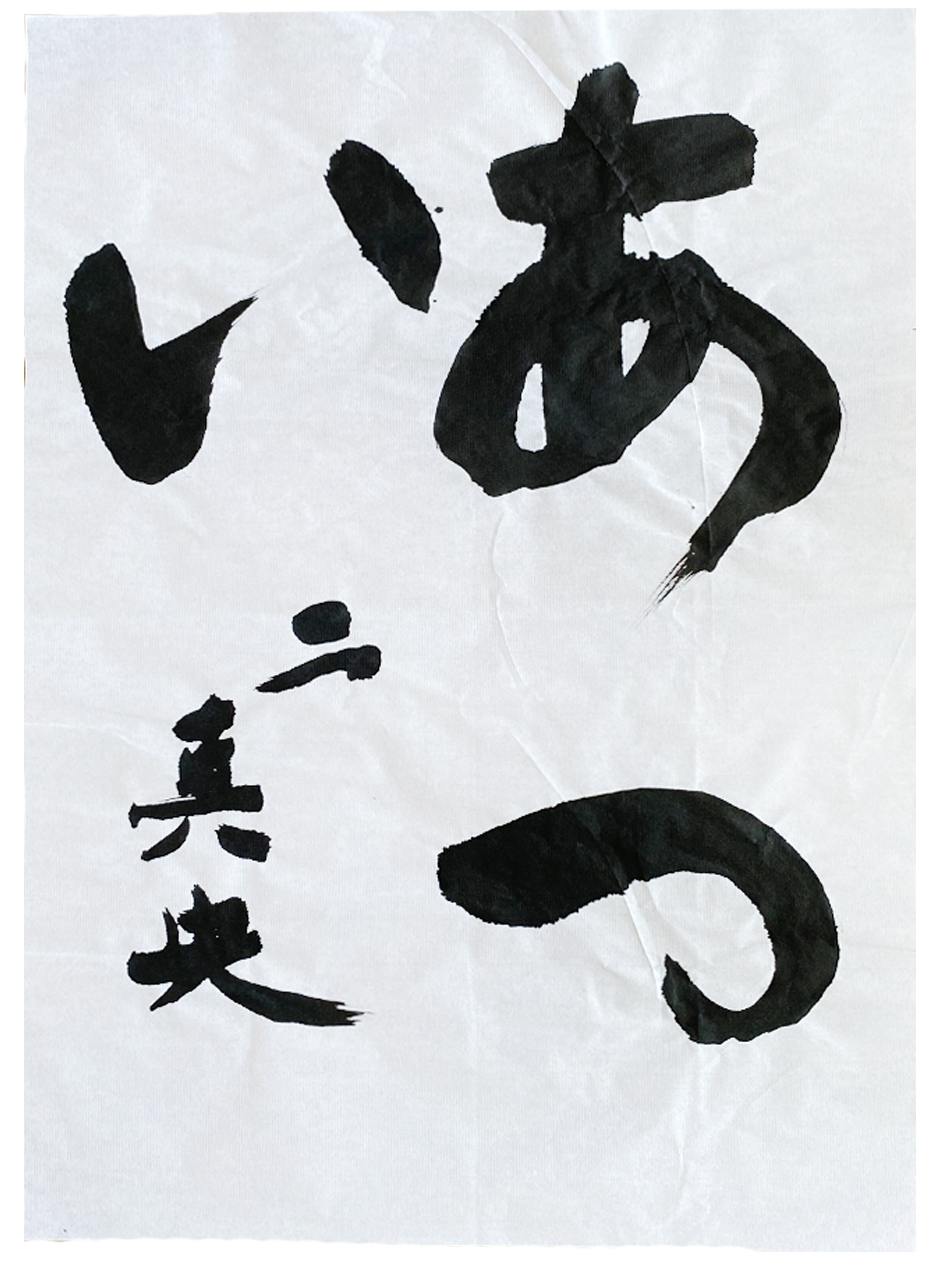 あつ
い
二
真央